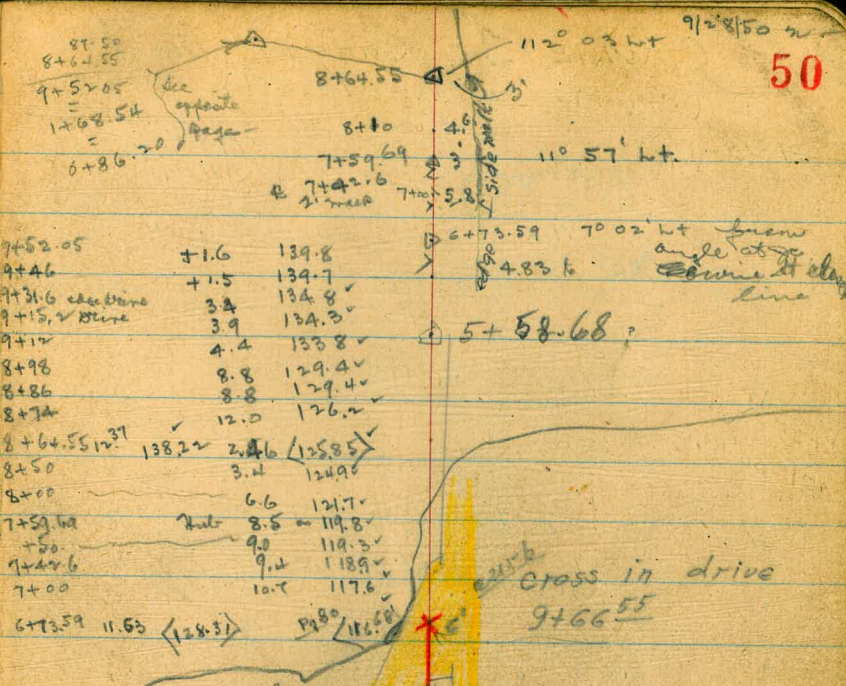 9/28/50
50
87.50
8+64.55
9+52.05
=
1+68.54
=
6+86.20
See
opposite
page-
112° 03 Lt
8+64.55
3'
8+10 4.6
7+59.69 3. 11° 57' Lt.
7+42.6 7+00 5.8
edge of sidewalk
6+73.59 7° 02' Lt from
angle at
4.83
line
5+58.68 ?
9+52.05 +1.6 139.8
9+46 +1.5 139.7
9+31.6 edge Drive 3.4 134.8 ✓
9+15.2 Drive 3.9 134.3 ✓
9+12 4.4 133.8 ✓
8+98 8.8 129.4 ✓
8+86 8.8 129.4 ✓
8+74 12.0 126.2 ✓
8+64.55 12.37 138.22 2.46 <125.85>
8+50 3.4 124.9 ✓
8+00 6.6 121.7 ✓
7+59.69 Hub 8.5 119.8 ✓
+50 9.0 119.3 ✓
7+42.6 9.4 118.9 ✓
7+00 10.7 117.6 ✓
6+73.59 11.63 <128.31> Pg 80 <116.68>
6'
Cross in drive
9+66.55